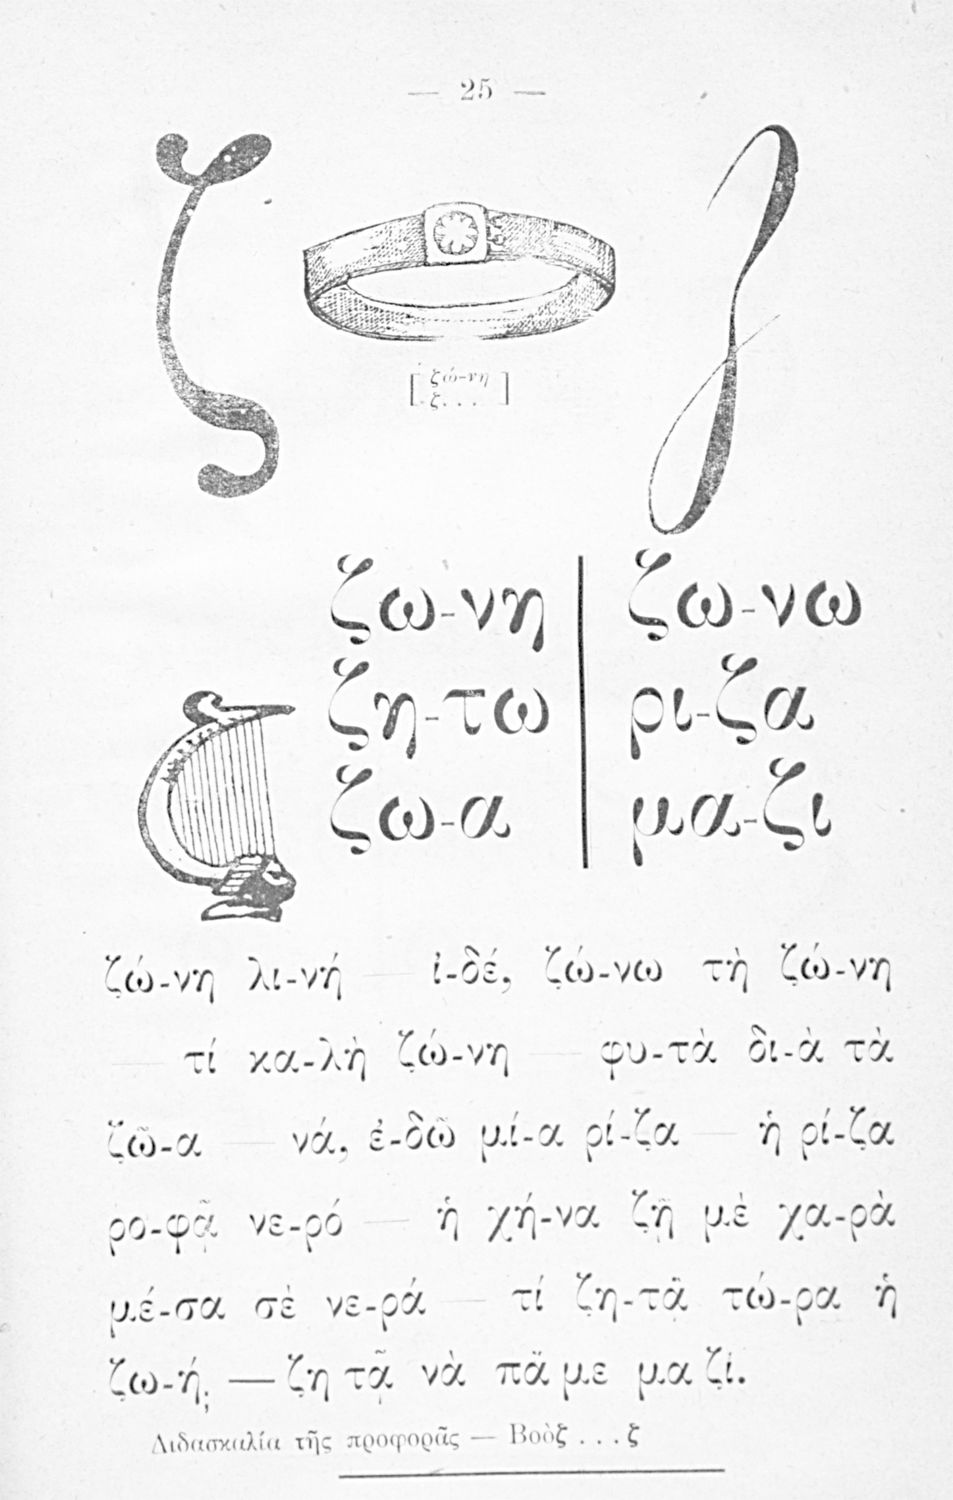 — 25 —
ζ
ζ
ζώ-νη
ζ...
ζω-νη
ζη-τω
ζω-α
ζω-νω
ρι-ζα
μα-ζι
ζώ-νη λι-νή — ἰ-δέ, ζώ-νω τὴ ζώ-νη
— τί κα-λὴ ζώ-νη — φυ-τὰ δι-ὰ τὰ
ζῶ-α — νά, ἐ-δῶ μί-α ρί-ζα — ἡ ρί-ζα
ρο-φᾷ νε-ρό — ἡ χή-να ζῇ μὲ χα-ρὰ
μέ-σα σὲ νε-ρά — τί ζη-τᾷ τώ-ρα ἡ
ζω-ή; — ζη τᾷ νὰ πᾶ με μα ζί.
Διδασκαλία τῆς προφορᾶς — Βοὸζ ...ζ